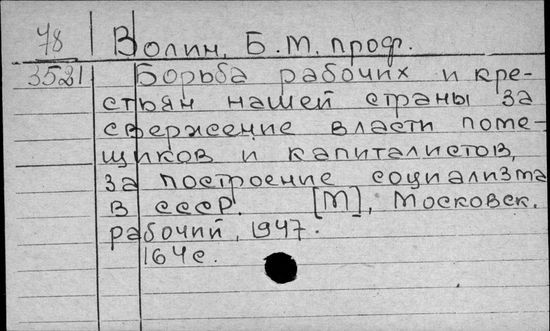 78 Волин, Б.М. проф.
3521 Борьба рабочих и кре-
стьян нашей страны за
свержение власти поме-
щиков и капиталистов,
за построение социализма
в СССР. [М], Московск.
рабочий, 1947.
164с.